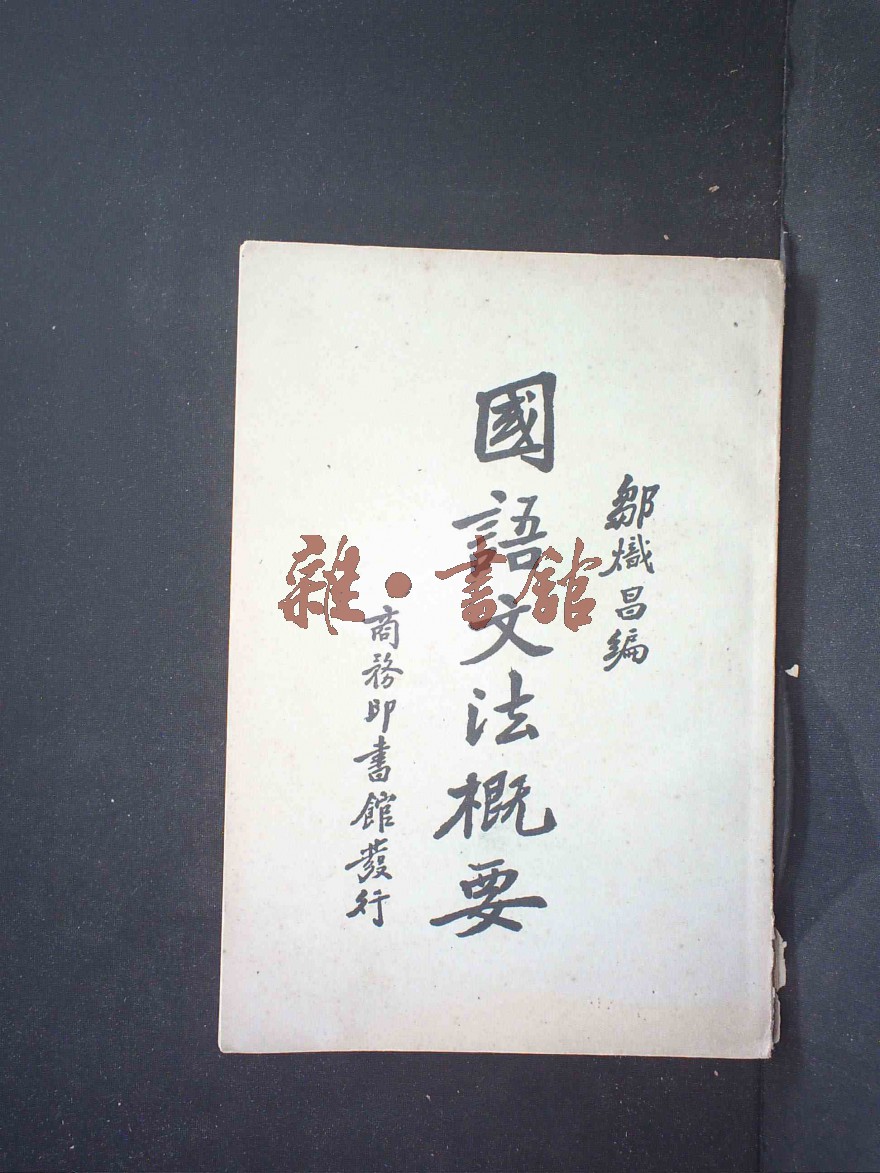 鄒熾昌編
國語文法概要
商務印書館發行
雜·書館